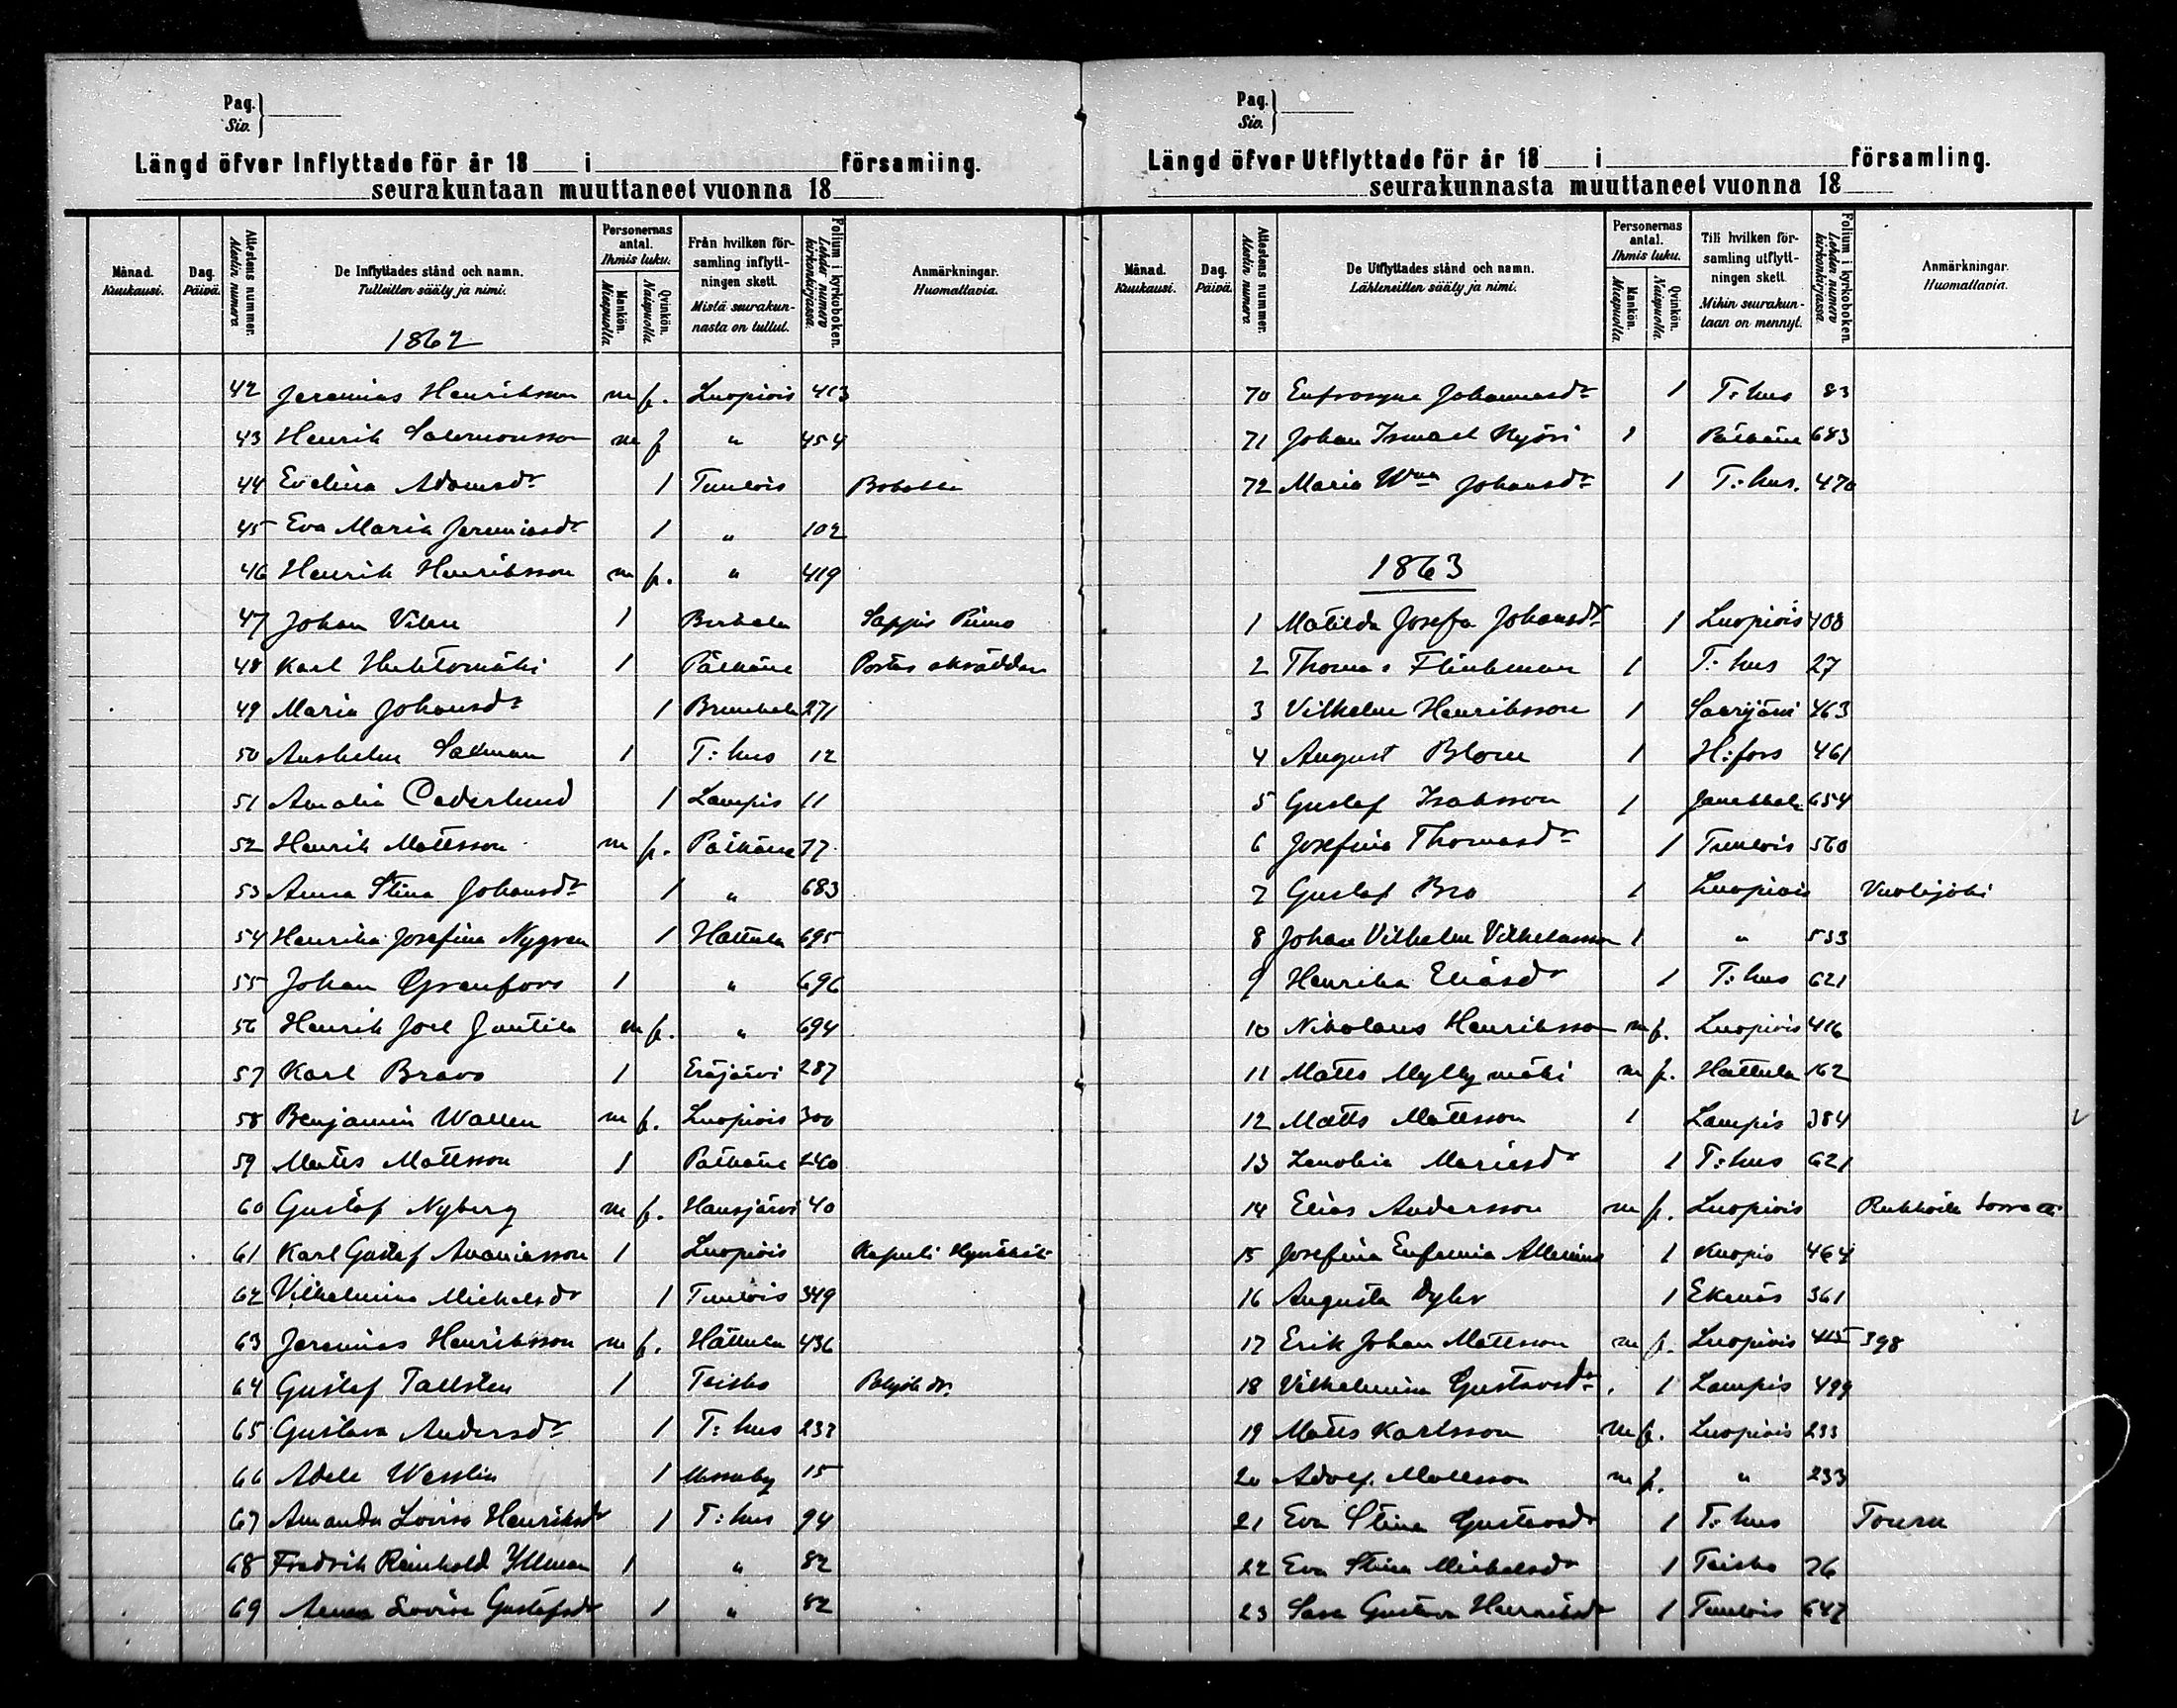 Pag. Siv.
Längd öfver Inflyttade för år 18 i församling.
seurakuntaan muuttaneet vuonna 18
Månad. Kuukausi.
Dag. Päivä.
Attestens nummer. Alestin numero
De Inflyttades stånd och namn. Tulleitten sääty ja nimi.
Personernas antal. Ihmis luku.
Mankön. Miespuolia.
Qvinkön. Naispuolia.
Från hvilken församling inflyttningen skett. Mistä seurakunnasta on tullut.
Folium i kyrkoboken. Lehden numero kirkonkirjassa.
Anmärkningar. Huomattavia.
1862
42 Jeremias Henriksson m f. Luopiois 413
43 Henrik Salomonsson m f " 454
44 Evelina Adamsdr 1 Tuulois
45 Eva Maria Jeremiasdr 1 " 102
46 Henrik Henriksson m f. " 419
47 Johan Vilen 1 Birkala
48 Karl Huhtomäki 1 Pälkäne Portas skräddare
49 Maria Johansdr 1 271
50 Anshelm Salman 1 T:hus 12
51 Amalia Cederlund 1 Lampis 11
52 Henrik Mattsson m f. Pälkäne 77
53 Anna Stina Johansdr 1 " 683
54 Henrika Josefina Nygren 1 Hattula 695
55 Johan Granfors 1 " 696
56 Henrik Joel Jantila m f. " 694
57 Karl Bravo 1 Eräjärvi 287
58 Benjamin Wallen m f. Luopiois 300
59 Matts Mattsson 1 Pälkäne 240
60 Gustaf Nyberg m f. Hausjärvi 40
61 Karl Gustaf Ananiasson 1 Luopiois
62 Vilhelmina Michelsdr 1 Tuulois 349
63 Jeremias Henriksson m f. Hattula 436
64 Gustaf Tallsten 1 Teisko
65 Gustava Andersdr 1 T:hus 233
66 Adele Wesslin 1 15
67 Amanda Lovisa Henriksdr 1 T:hus 94
68 Fredrik Reinhold Yllman 1 " 82
69 Anna Lovisa Gustafsdr 1 " 82
Pag. Siv.
Längd öfver Utflyttade för år 18 i församling.
seurakunnasta muuttaneet vuonna 18
Månad. Kuukausi.
Dag. Päivä.
Attestens nummer. Alestin numero
De Utflyttades stånd och namn. Lähteneitten sääty ja nimi.
Personernas antal. Ihmis luku.
Mankön. Miespuolia.
Qvinkön. Naispuolia.
Till hvilken församling utflyttningen skett. Mihin seurakuntaan on mennyt.
Folium i kyrkoboken. Lehden numero kirkonkirjassa.
Anmärkningar. Huomattavia.
70 Eufrosyne Johannesdr 1 T:hus 83
71 Johan Ismael Kyöri 1 Pälkäne 683
72 Maria Wma Johansdr 1 T:hus. 470
1863
1 Matilda Josefa Johansdr 1 Luopiois 408
2 Thomas Flinkman 1 T:hus 27
3 Vilhelm Henriksson 1 Saarijärvi 463
4 August Blom 1 H:fors 461
5 Gustaf Isaksson 1 Janakkala 654
6 Josefina Thomasdr 1 Tuulois 560
7 Gustaf Bro 1 Luopiois Vuolijoki
8 Johan Vilhelm Vilhelmsson 1 " 533
9 Henrika Eliasdr 1 T:hus 621
10 Nikolaus Henriksson m f. Luopiois 416
11 Matts Myllymäki m f. Hattula 162
12 Matts Mattsson 1 Lampis 384
13 Zenobia Mariasdr 1 T:hus 621
14 Elias Andersson m f. Luopiois
15 Josefina Eufemia Allenius 1 Kuopio 464
16 Augusta Dyhr 1 Ekenäs 361
17 Erik Johan Mattsson m f. Luopiois 415 398
18 Vilhelmina Gustavsdr 1 Lampis 499
19 Matts Karlsson m f. Luopiois 233
20 Adolf Mattsson m f. " 233
21 Eva Stina Gustavsdr 1 T:hus Touru
22 Eva Stina Michelsdr 1 Teisko 76
23 Gustava 1 Tuulois 647